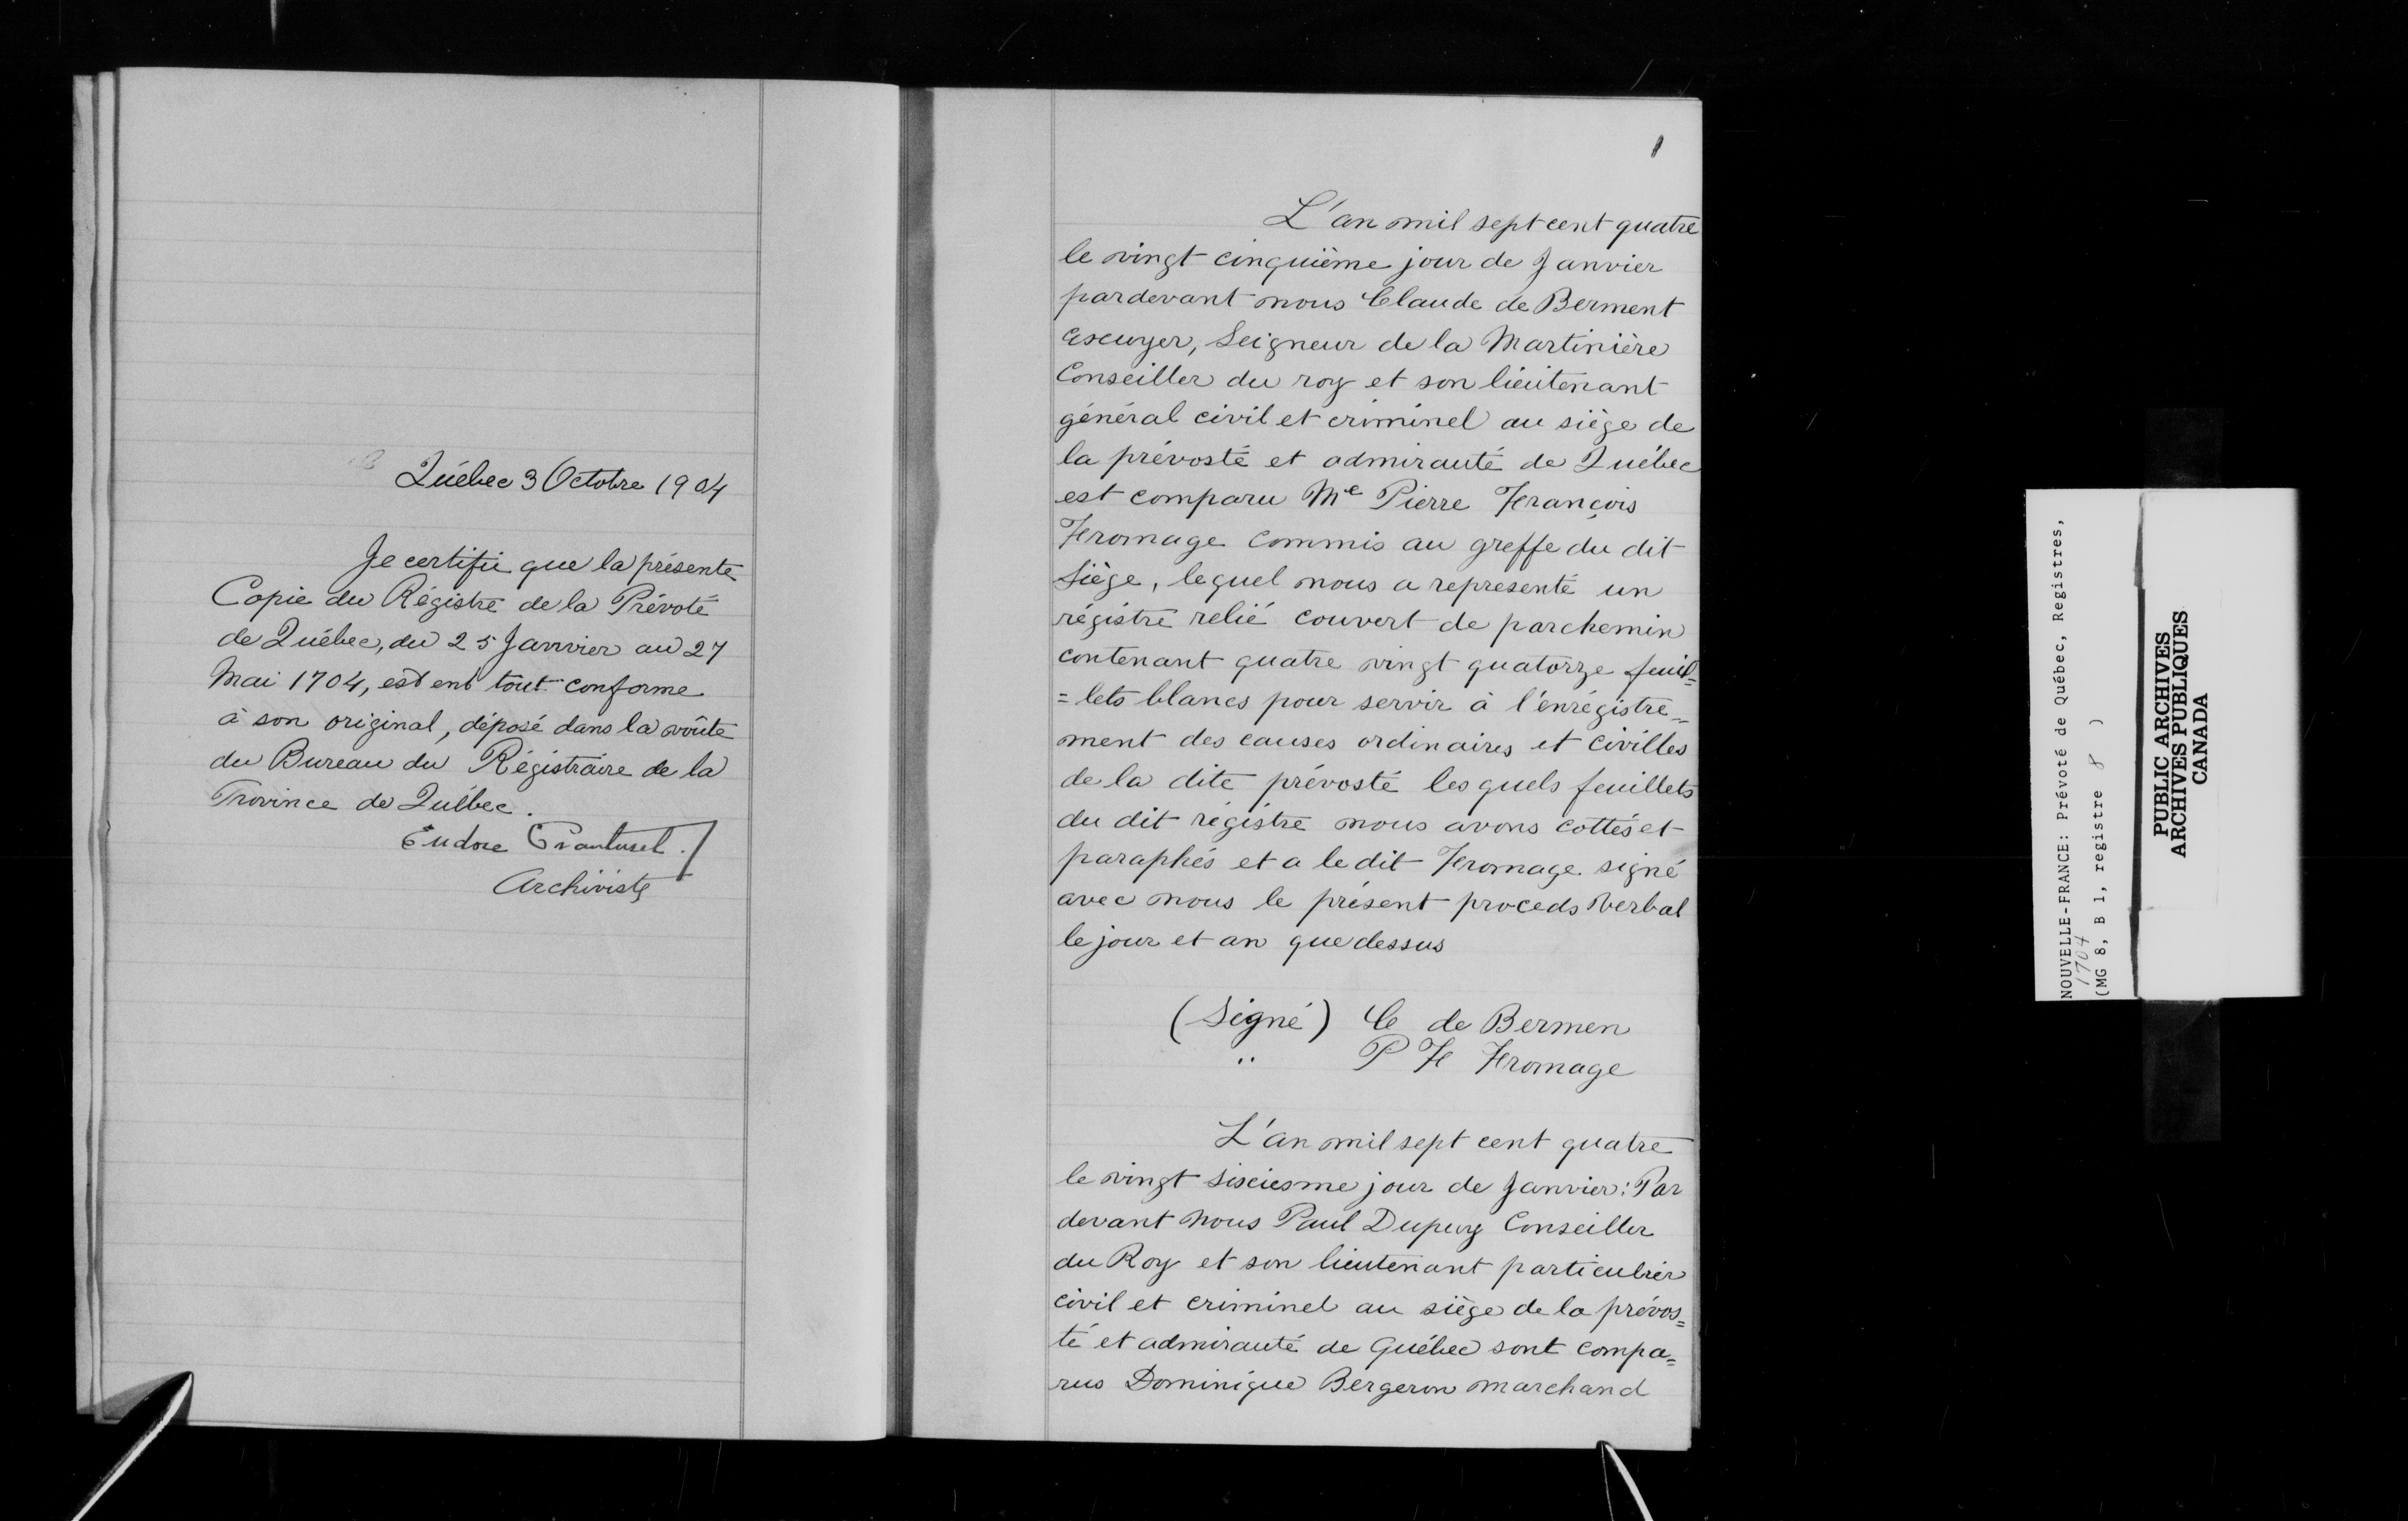 Québec 3 Octobre 1904
Je certifie que la présente
Copie du Régistre de la Prévoté
de Québec, du 25 Janvier au 27
Mai 1704, est en tout conforme
à son original, déposé dans la voûte
du Bureau du Régistraire de la
Province de Québec.
Eudore
Archiviste
1
L'an mil sept cent quatre
le vingt cinquième jour de Janvier
pardevant nous Claude de Berment
Escuyer, Seigneur de la Martinière
Conseiller du roy et son lieutenant
général civil et criminel au siège de
la prévosté et admirauté de Québec
est comparu Me Pierre François
Fromage commis au greffe du dit
Siège, lequel nous a representé un
régistre relié couvert de parchemin
contenant quatre vingt quatorze feuil=
=lets blancs pour servir à l'enrégistre=
ment des causes ordinaires et civilles
de la dite prévosté les quels feuillets
du dit régistre nous avons cottés et
paraphés et a le dit Fromage signé
avec nous le présent proceds verbal
le jour et an que dessus
(Signé) C de Bermen
" P F Fromage
L'an mil sept cent quatre
le vingt sixiesme jour de Janvier: Par
devant nous Paul Dupuy Conseiller
du Roy et son lieutenant particulier
civil et criminel au siège de la prévos=
té et admirauté de Québec sont compa=
rus Dominique Bergeron marchand
NOUVELLE-FRANCE: Prévoté de Québec, Registres,
1704
(MG 8, B 1, registre 8 )
PUBLIC ARCHIVES
ARCHIVES PUBLIQUES
CANADA